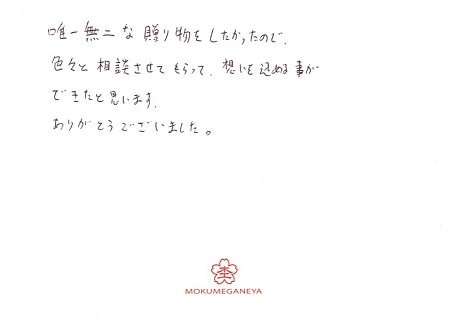 唯一無二な贈り物をしたかったので、
色々と相談させてもらって、想いを込める事が
できたと思います。
ありがとうございました。
杢
MOKUMEGANEYA